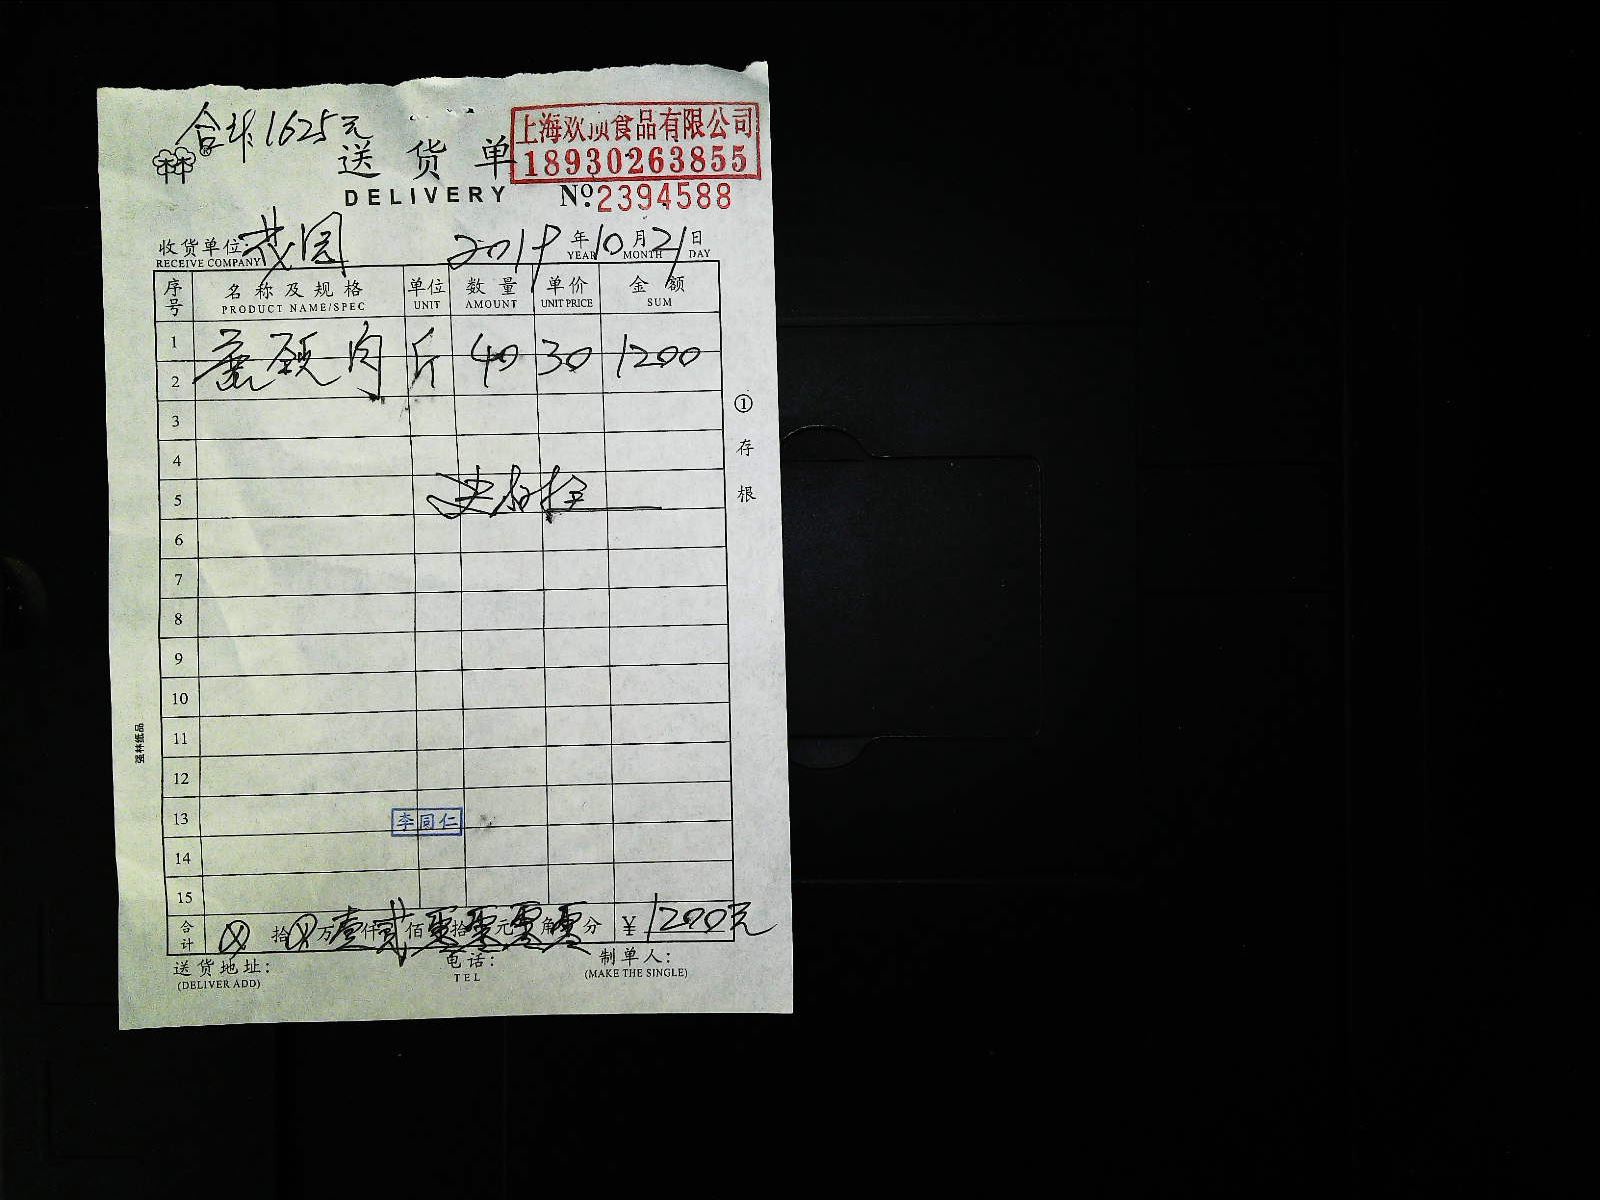 合计1625元
上海欢顶食品有限公司
18930263855
送货单
DELIVERY No:2394588
收货单位: 茂园 2019年10月21日
RECEIVE COMPANY YEAR MONTH DAY
序号 名称及规格 单位 数量 单价 金额
PRODUCT NAME/SPEC UNIT AMOUNT UNIT PRICE SUM
1 颈肉 斤 40 30 1200
2
3
4
5
6
7
8
9
10
11
12
13 李同仁
14
15
合计 ⊗拾⊗万壹仟贰佰零拾零元零角零分 ¥1200元
送货地址: 电话: 制单人:
(DELIVER ADD) TEL (MAKE THE SINGLE)
①存根
强林纸品